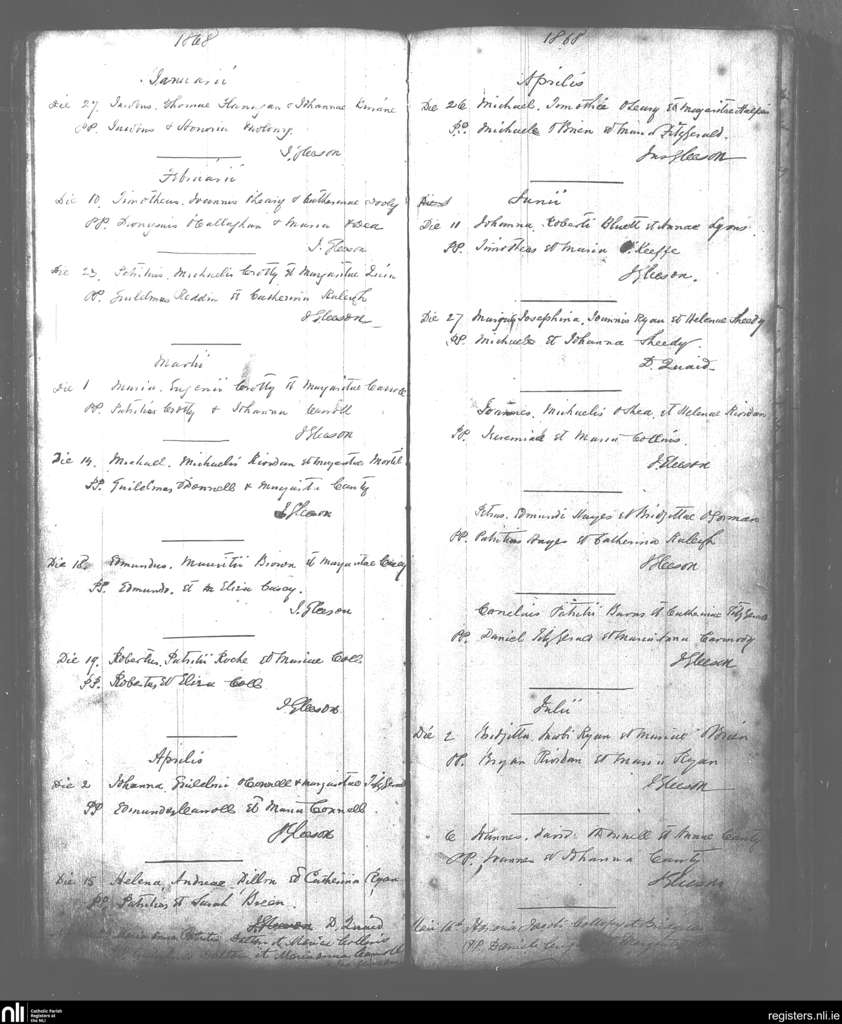 1868
Januarii
Die 27. Thomae Flanigan & Johannae
PP. & Honoria
J. Gleeson
Februarii
Die 10. Timotheus, Joannis O'Leary & Catharinae
PP. Dionysius O'Callaghan & Maria O'Dea
J. Gleeson
Die 23. Patritius, Michaelis Crotty et Margaritae
PP. Guilelmus Reddin et Catherina Raleigh
J Gleeson
Martii
Die 1 Maria. Eugenii Crotty et Margaritae Carroll
PP. Patritius Crotty & Johanna Carroll
J Gleeson
Die 14. Michael. Michaelis Riordan et Margaritae
PP. Guilelmus O'Donnell & Margarita Canty
J Gleeson
Die Edmundus. Mauritii Brown et Margaritae Casey
PP. Edmundo. et Eliza Casey.
J. Gleeson
Die 19. Robertus. Patritii Roche et Mariae Coll.
PP. Robertus et Eliza Coll
J Gleeson
Aprilis
Die 2 Johanna, Guilelmi O'Connell & Margaritae FitzGerald
PP Edmundus Carroll et Maria Connell.
J Gleeson
Die 15 Helena, Andreae Dillon et Catherina Ryan
PP. Patritius et Sarah Breen.
J Gleeson D. Quaid
Maria Anna Patritii et Mariae Collins
et Marianna Carroll
1868
Aprilis
Die 26 Michael. Timothei O'Leary et Margaritae Halpin
PP. Michael O'Brien et Maria Fitzgerald.
Jno Gleeson
Junii
Die 11 Johanna, Roberti Bluett et Annae Lyons
PP. Timotheus et Maria O'Keeffe
J Gleeson.
Die 27 Josephina, Joannis Ryan et Helenae Sheedy
PP. Michael et Johanna Sheedy.
D. Quaid.
Joannes, Michaelis O'Shea, et Helenae Riordan
PP. Jeremiah et Maria Collins.
J Gleeson
Petrus. Edmundi Hayes et Bridgittae O'Gorman
PP. Patritius Hayes et Catherina Raleigh
J Gleeson
Cornelius Patritii Barns et Catharinae FitzGerald
PP. Daniel FitzGerald et Maria Anna Carmody
J Gleeson
Julii
Die 2 Bridgitta, Jacobi Ryan et Mariae O'Brien
PP. Bryan Riordan et Maria Ryan
J Gleeson
6 Joannes. David et Annae Canty
PP. Joannes et Johanna Canty
J Gleeson
Honoria Jacobi
PP. Daniel
nli
Catholic Parish
Registers at
the NLI
registers.nli.ie